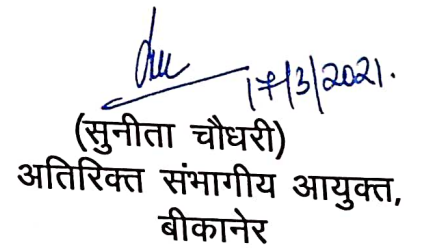 17/3/2021.
(सुनीता चौधरी)
अतिरिक्त संभागीय आयुक्त,
बीकानेर